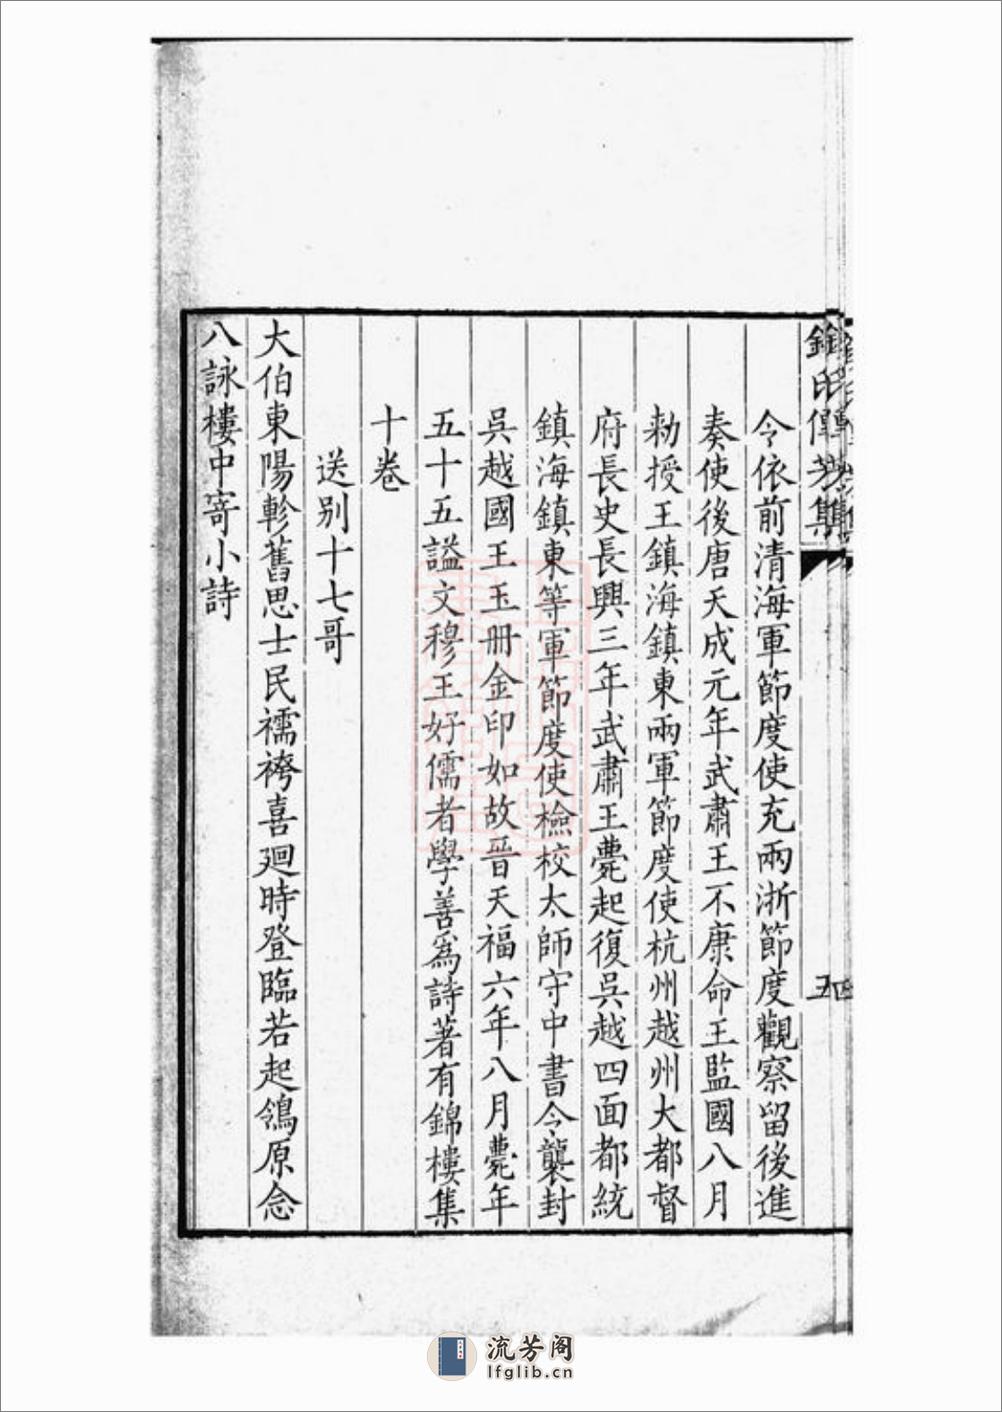 錢氏傳芳集
五
令依前清海軍節度使充兩浙節度觀察留後進
奏使後唐天成元年武肅王不康命王監國八月
勅授王鎮海鎮東兩軍節度使杭州越州大都督
府長史長興三年武肅王薨起復吳越四面都統
鎮海鎮東等軍節度使檢校太師守中書令襲封
吳越國王玉册金印如故晉天福六年八月薨年
五十五謚文穆王好儒者學善爲詩著有錦樓集
十卷
送别十七哥
大伯東陽軫舊思士民襦袴喜廻時登臨若起鴒原念
八詠樓中寄小詩
流芳阁
lfglib.cn